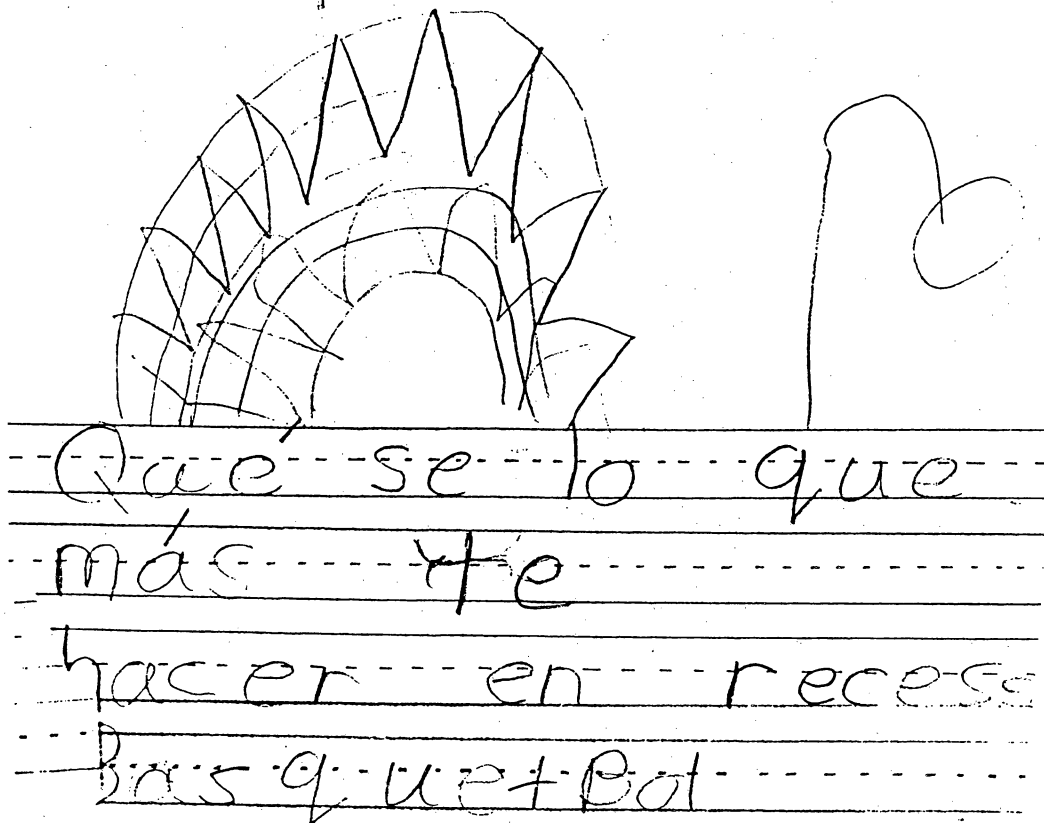 Qué se lo que
más te
hacer en recess
BasquetBol